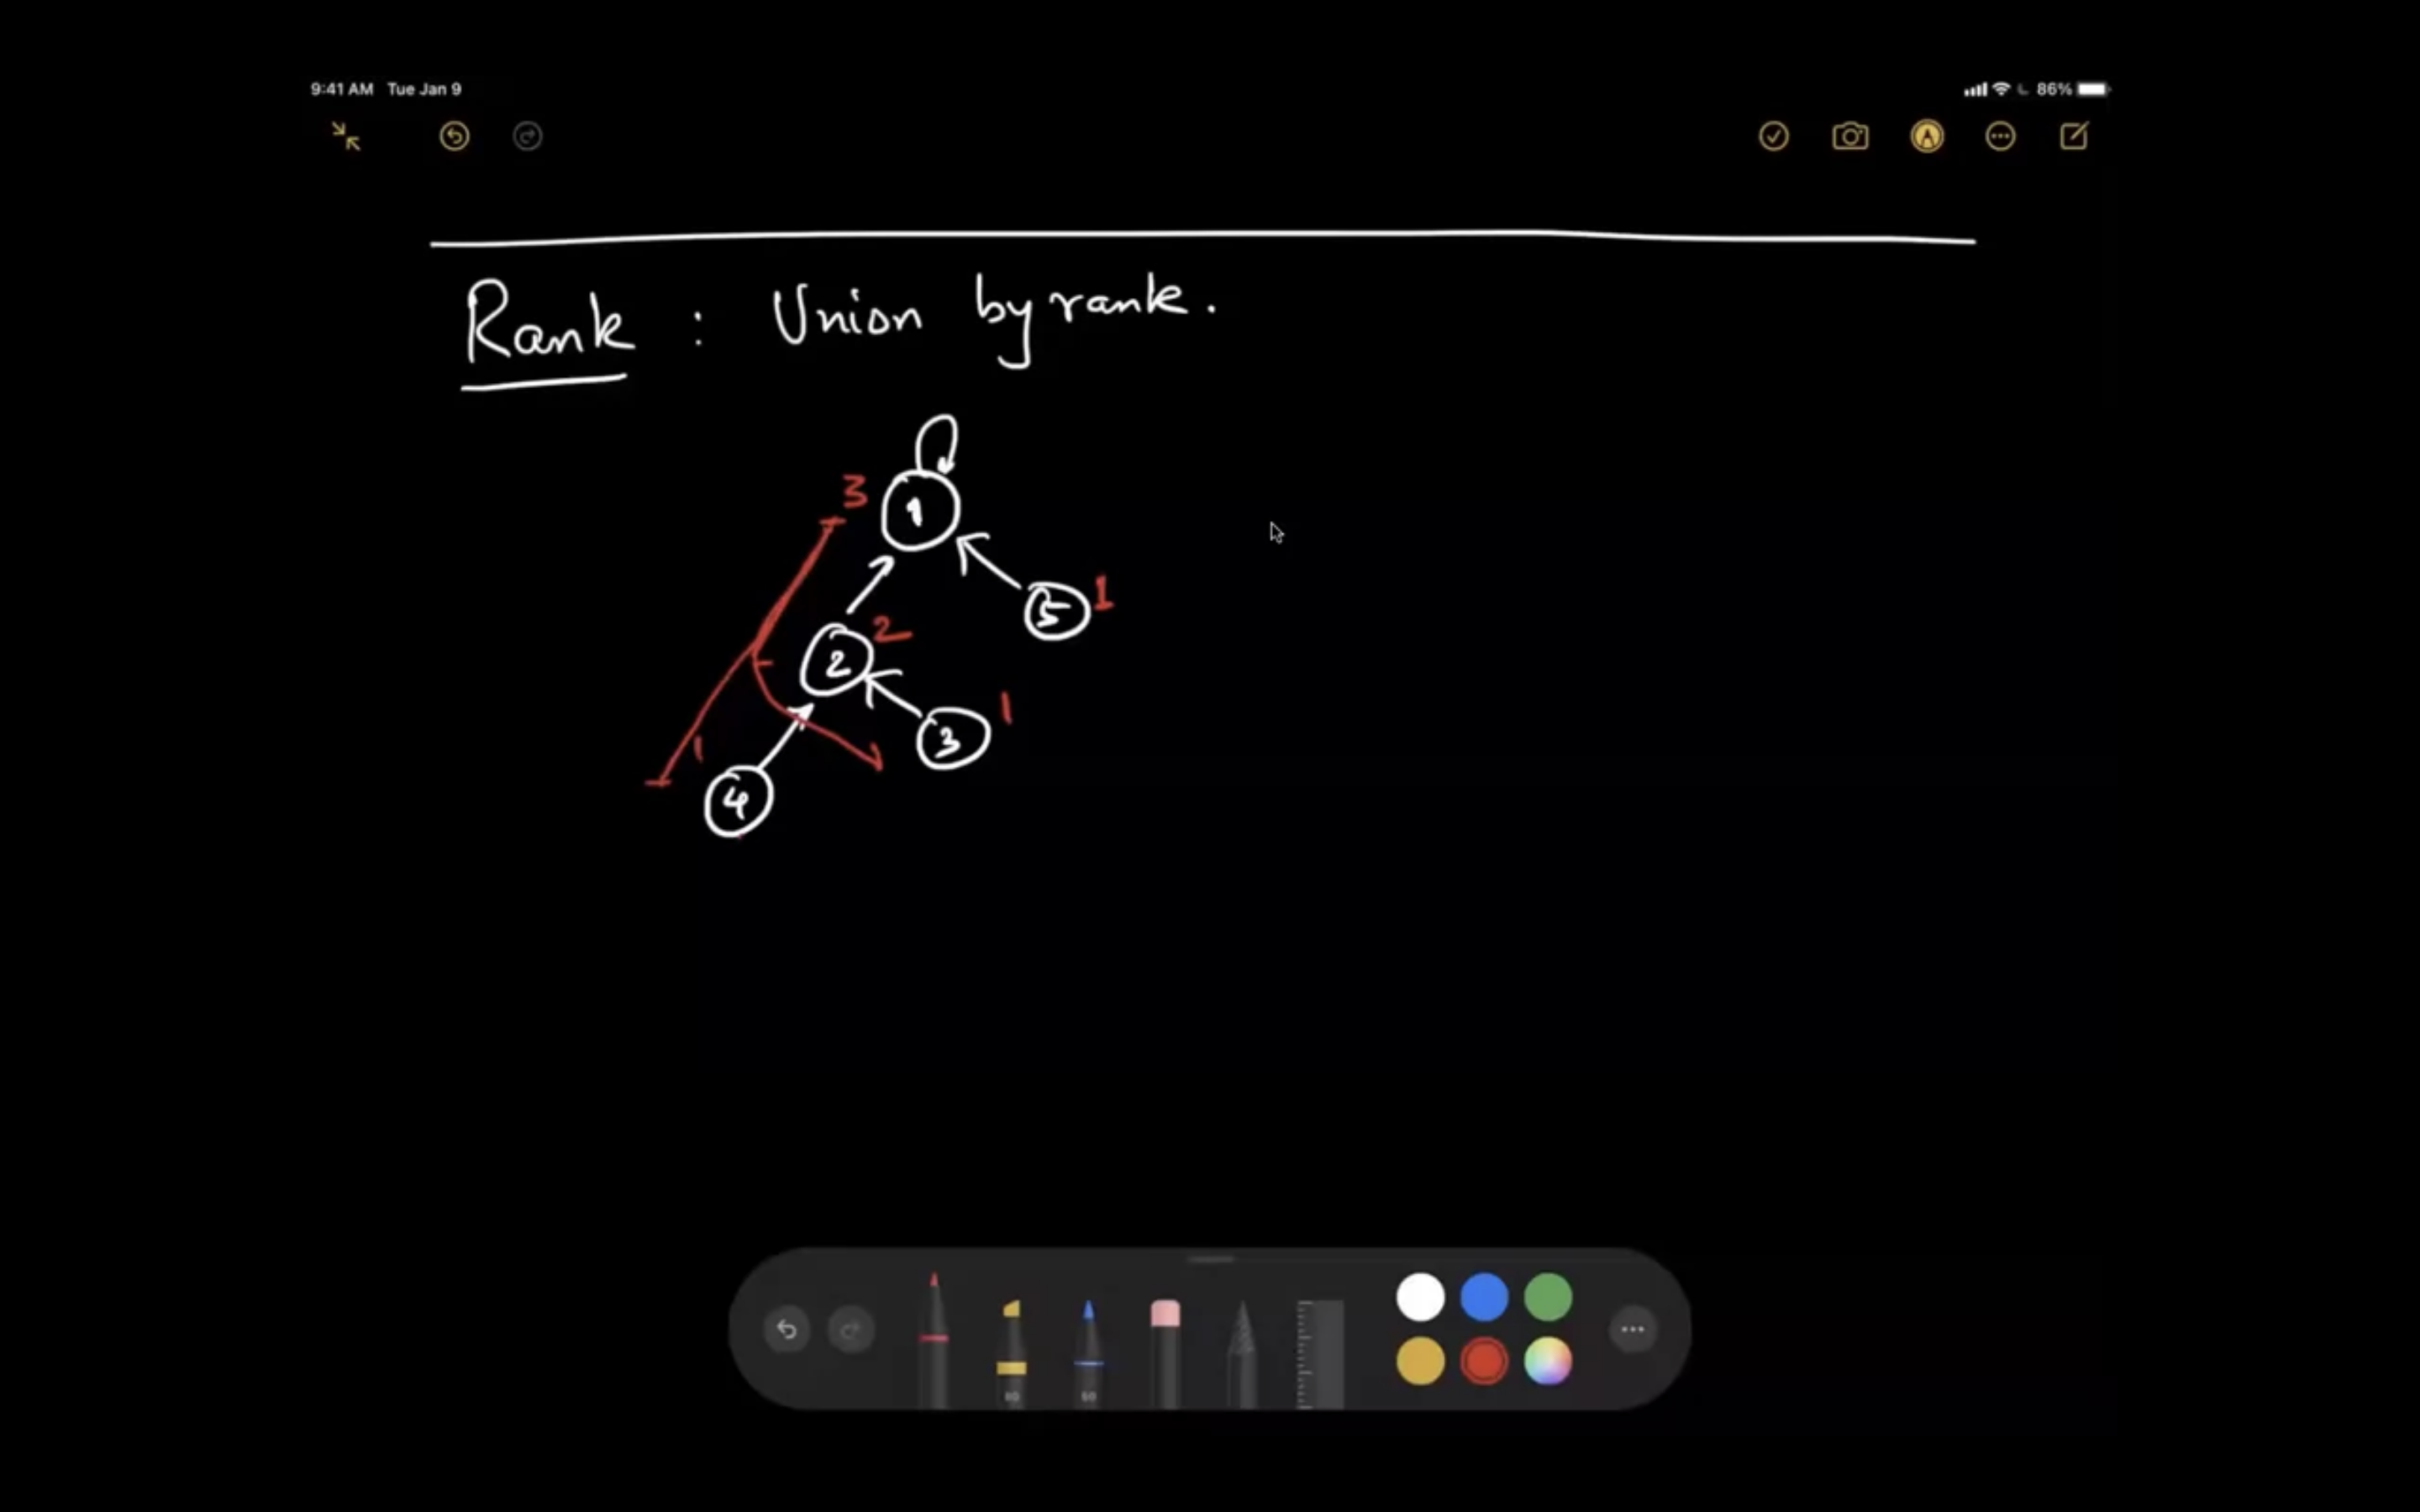 9:41 AM Tue Jan 9
86%
Rank : Union by rank.
3
1
5 1
2 2
3 1
1
4
80